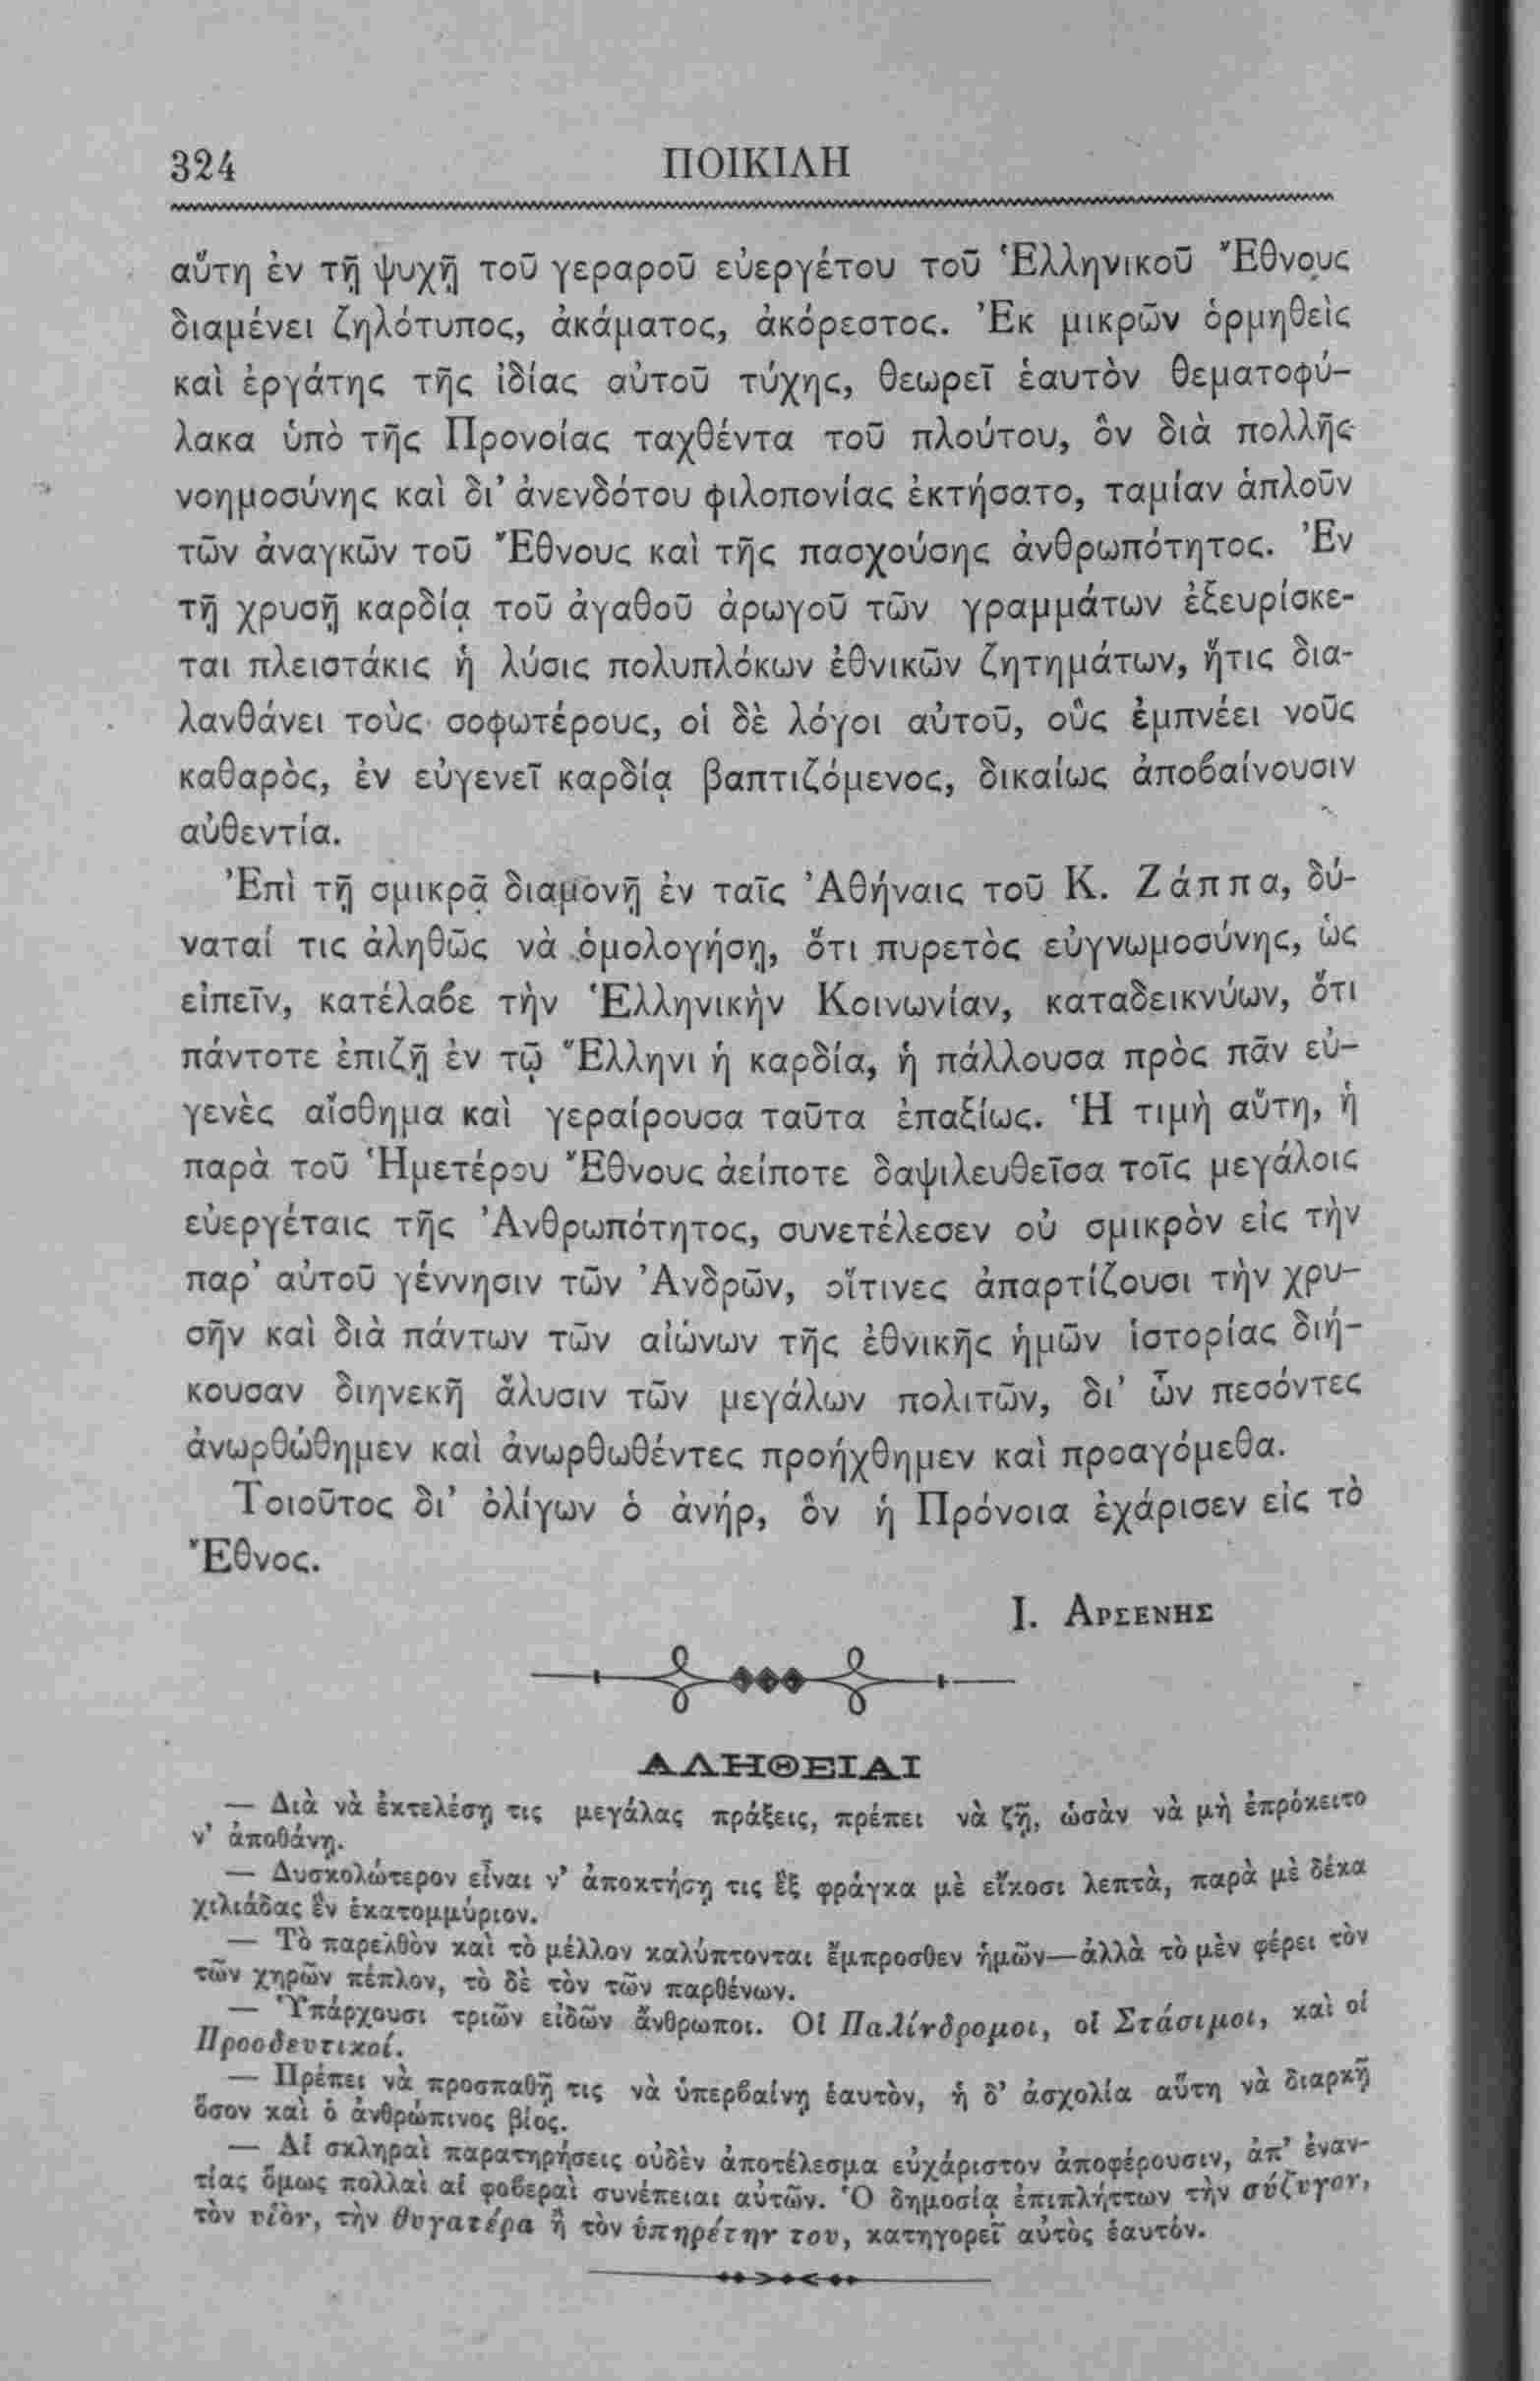 324
ΠΟΙΚΙΛΗ
αὕτη ἐν τῇ ψυχῇ τοῦ γεραροῦ εὐεργέτου τοῦ Ἑλληνικοῦ Ἔθνους
διαμένει ζηλότυπος, ἀκάματος, ἀκόρεστος. Ἐκ μικρῶν ὁρμηθεὶς
καὶ ἐργάτης τῆς ἰδίας αὐτοῦ τύχης, θεωρεῖ ἑαυτὸν θεματοφύ-
λακα ὑπὸ τῆς Προνοίας ταχθέντα τοῦ πλούτου, ὃν διὰ πολλῆς
νοημοσύνης καὶ δι' ἀνενδότου φιλοπονίας ἐκτήσατο, ταμίαν ἁπλοῦν
τῶν ἀναγκῶν τοῦ Ἔθνους καὶ τῆς πασχούσης ἀνθρωπότητος. Ἐν
τῇ χρυσῇ καρδίᾳ τοῦ ἀγαθοῦ ἀρωγοῦ τῶν γραμμάτων ἐξευρίσκε-
ται πλειστάκις ἡ λύσις πολυπλόκων ἐθνικῶν ζητημάτων, ἥτις δια-
λανθάνει τοὺς σοφωτέρους, οἱ δὲ λόγοι αὐτοῦ, οὓς ἐμπνέει νοῦς
καθαρὸς, ἐν εὐγενεῖ καρδίᾳ βαπτιζόμενος, δικαίως ἀποβαίνουσιν
αὐθεντία.
Ἐπὶ τῇ σμικρᾷ διαμονῇ ἐν ταῖς Ἀθήναις τοῦ Κ. Ζάππα, δύ-
ναταί τις ἀληθῶς νὰ ὁμολογήσῃ, ὅτι πυρετὸς εὐγνωμοσύνης, ὡς
εἰπεῖν, κατέλαβε τὴν Ἑλληνικὴν Κοινωνίαν, καταδεικνύων, ὅτι
πάντοτε ἐπιζῇ ἐν τῷ Ἕλληνι ἡ καρδία, ἡ πάλλουσα πρὸς πᾶν εὐ-
γενὲς αἴσθημα καὶ γεραίρουσα ταῦτα ἐπαξίως. Ἡ τιμὴ αὕτη, ἡ
παρὰ τοῦ Ἡμετέρου Ἔθνους ἀείποτε δαψιλευθεῖσα τοῖς μεγάλοις
εὐεργέταις τῆς Ἀνθρωπότητος, συνετέλεσεν οὐ σμικρὸν εἰς τὴν
παρ' αὐτοῦ γέννησιν τῶν Ἀνδρῶν, οἵτινες ἀπαρτίζουσι τὴν χρυ-
σῆν καὶ διὰ πάντων τῶν αἰώνων τῆς ἐθνικῆς ἡμῶν ἱστορίας διή-
κουσαν διηνεκῆ ἅλυσιν τῶν μεγάλων πολιτῶν, δι' ὧν πεσόντες
ἀνωρθώθημεν καὶ ἀνωρθωθέντες προήχθημεν καὶ προαγόμεθα.
Τοιοῦτος δι' ὀλίγων ὁ ἀνήρ, ὃν ἡ Πρόνοια ἐχάρισεν εἰς τὸ
Ἔθνος.
Ι. ΑΡΣΕΝΗΣ
ΑΛΗΘΕΙΑΙ
— Διὰ νὰ ἐκτελέσῃ τις μεγάλας πράξεις, πρέπει νὰ ζῇ, ὡσὰν νὰ μὴ ἐπρόκειτο
ν' ἀποθάνῃ.
— Δυσκολώτερον εἶναι ν' ἀποκτήσῃ τις ἓξ φράγκα μὲ εἴκοσι λεπτὰ, παρὰ μὲ δέκα
χιλιάδας ἓν ἑκατομμύριον.
— Τὸ παρελθὸν καὶ τὸ μέλλον καλύπτονται ἔμπροσθεν ἡμῶν—ἀλλὰ τὸ μὲν φέρει τὸν
τῶν χηρῶν πέπλον, τὸ δὲ τὸν τῶν παρθένων.
— Ὑπάρχουσι τριῶν εἰδῶν ἄνθρωποι. Οἱ Παλίνδρομοι, οἱ Στάσιμοι, καὶ οἱ
Προοδευτικοί.
— Πρέπει νὰ προσπαθῇ τις νὰ ὑπερβαίνῃ ἑαυτὸν, ἡ δ' ἀσχολία αὕτη νὰ διαρκῇ
ὅσον καὶ ὁ ἀνθρώπινος βίος.
— Αἱ σκληραὶ παρατηρήσεις οὐδὲν ἀποτέλεσμα εὐχάριστον ἀποφέρουσιν, ἀπ' ἐναν-
τίας ὅμως πολλαὶ αἱ φοβεραὶ συνέπειαι αὐτῶν. Ὁ δημοσίᾳ ἐπιπλήττων τὴν σύζυγον,
τὸν υἱὸν, τὴν θυγατέρα ἢ τὸν ὑπηρέτην του, κατηγορεῖ αὐτὸς ἑαυτόν.